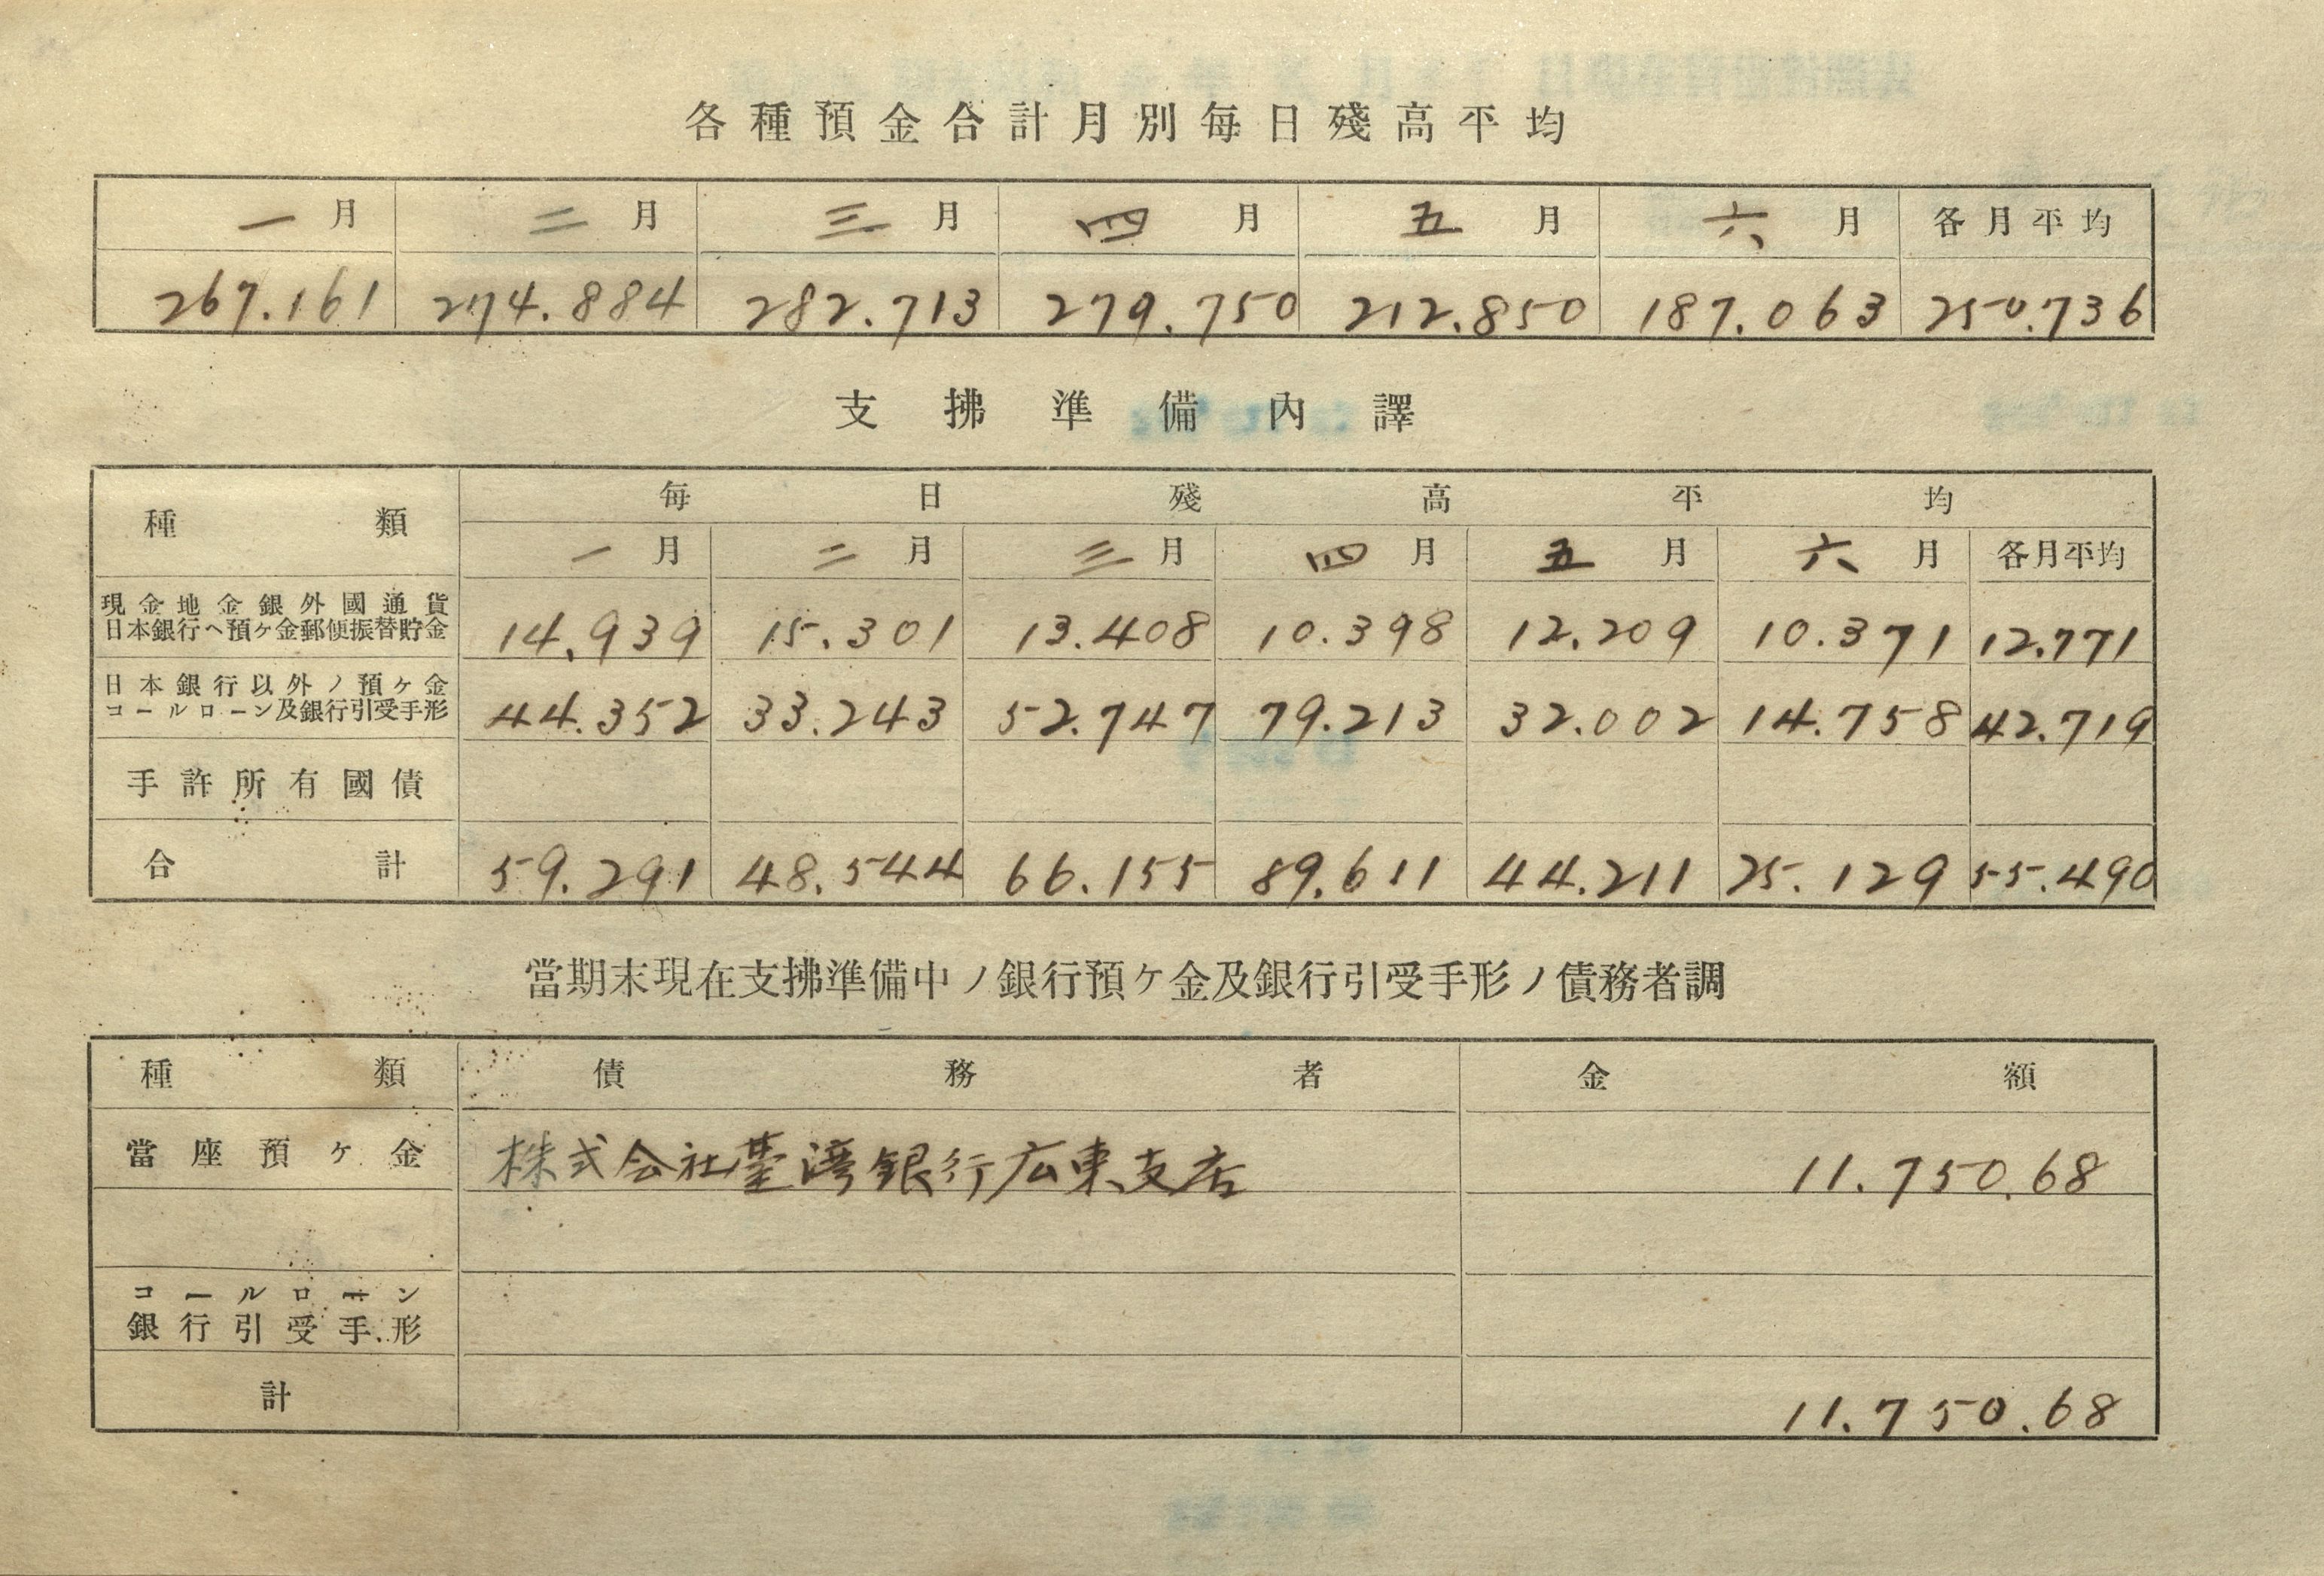 各種預金合計月別每日殘高平均
一月 二月 三月 四月 五月 六月 各月平均
267.161 274.884 282.713 279.750 212.850 187.063 250.736
支拂準備內譯
種類 每日殘高平均
一月 二月 三月 四月 五月 六月 各月平均
現金地金銀外國通貨
日本銀行ヘ預ケ金郵便振替貯金 14.939 15.301 13.408 10.398 12.209 10.371 12.771
日本銀行以外ノ預ケ金
コールローン及銀行引受手形 44.352 33.243 52.747 79.213 32.002 14.758 42.719
手許所有國債
合計 59.291 48.544 66.155 89.611 44.211 25.129 55.490
當期末現在支拂準備中ノ銀行預ケ金及銀行引受手形ノ債務者調
種類 債務者 金額
當座預ケ金 株式会社臺湾銀行広東支店 11.750.68
コールローン
銀行引受手形
計 11.750.68